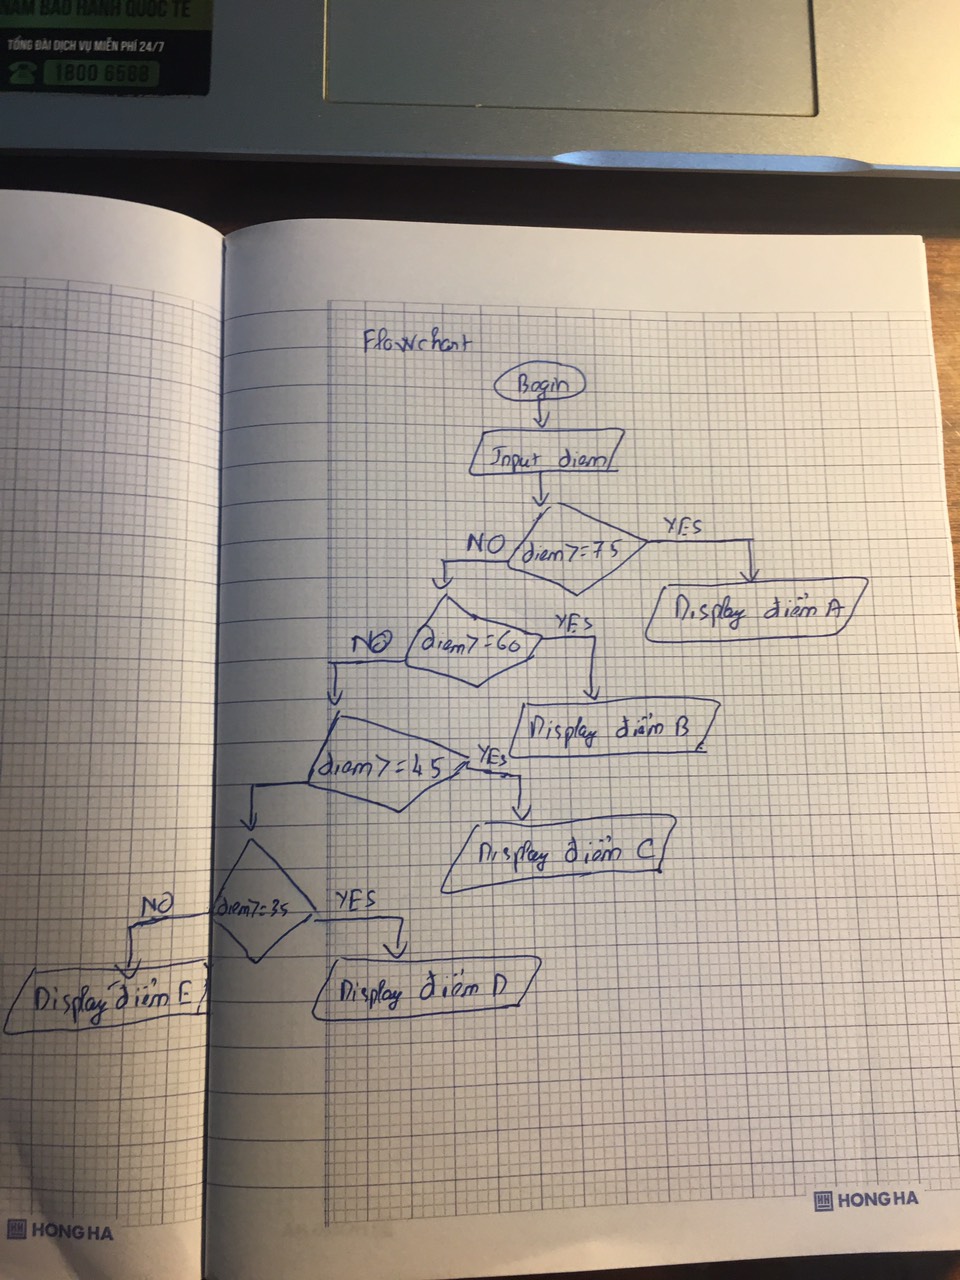 NĂM BẢO HÀNH QUỐC TẾ
TỔNG ĐÀI DỊCH VỤ MIỄN PHÍ 24/7
1800 6588
Flowchart
Begin
Input diem
diem>=75
NO
YES
Display điểm A
diem>=60
NO
YES
Display điểm B
diem>=45
YES
Display điểm C
diem>=35
NO
YES
Display điểm E
Display điểm D
HH HONG HA
HH HONG HA